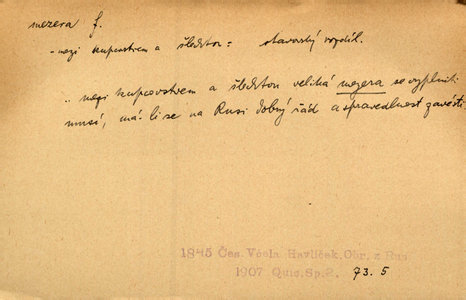 mezera f.
- mezi kupcovstvem a šlechtou: stavovský rozdíl.
.. mezi kupcovstvem a šlechtou veliká mezera se vyplniti
musí, má-li se na Rusi dobrý řád a spravedlnost zavésti
1845 Čes. Včela. Havlíček, Obr. z Rus
1907 Quis, Sp. 2. 73. 5